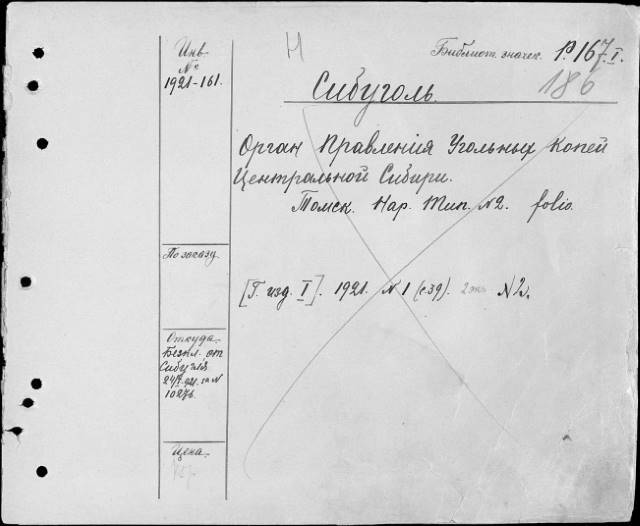 Инв.
№
1921-161.
Н
Библиот. значек. P.167.I.
186
Сибуголь.
Орган Правленія Угольных Копей
Центральной Сибири.
Томск. Нар. Тип. №2. folio.
По заказу
[Г. изд. I]. 1921. №1 (с.39). 2 экз №2.
Откуда
Безпл. от
Сибугля
10276.
Цена